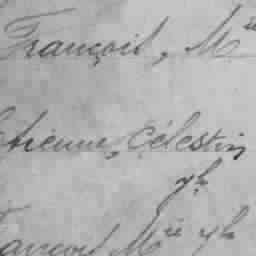 François, Mie
Etienne, Célestin
yh
François Mie yh